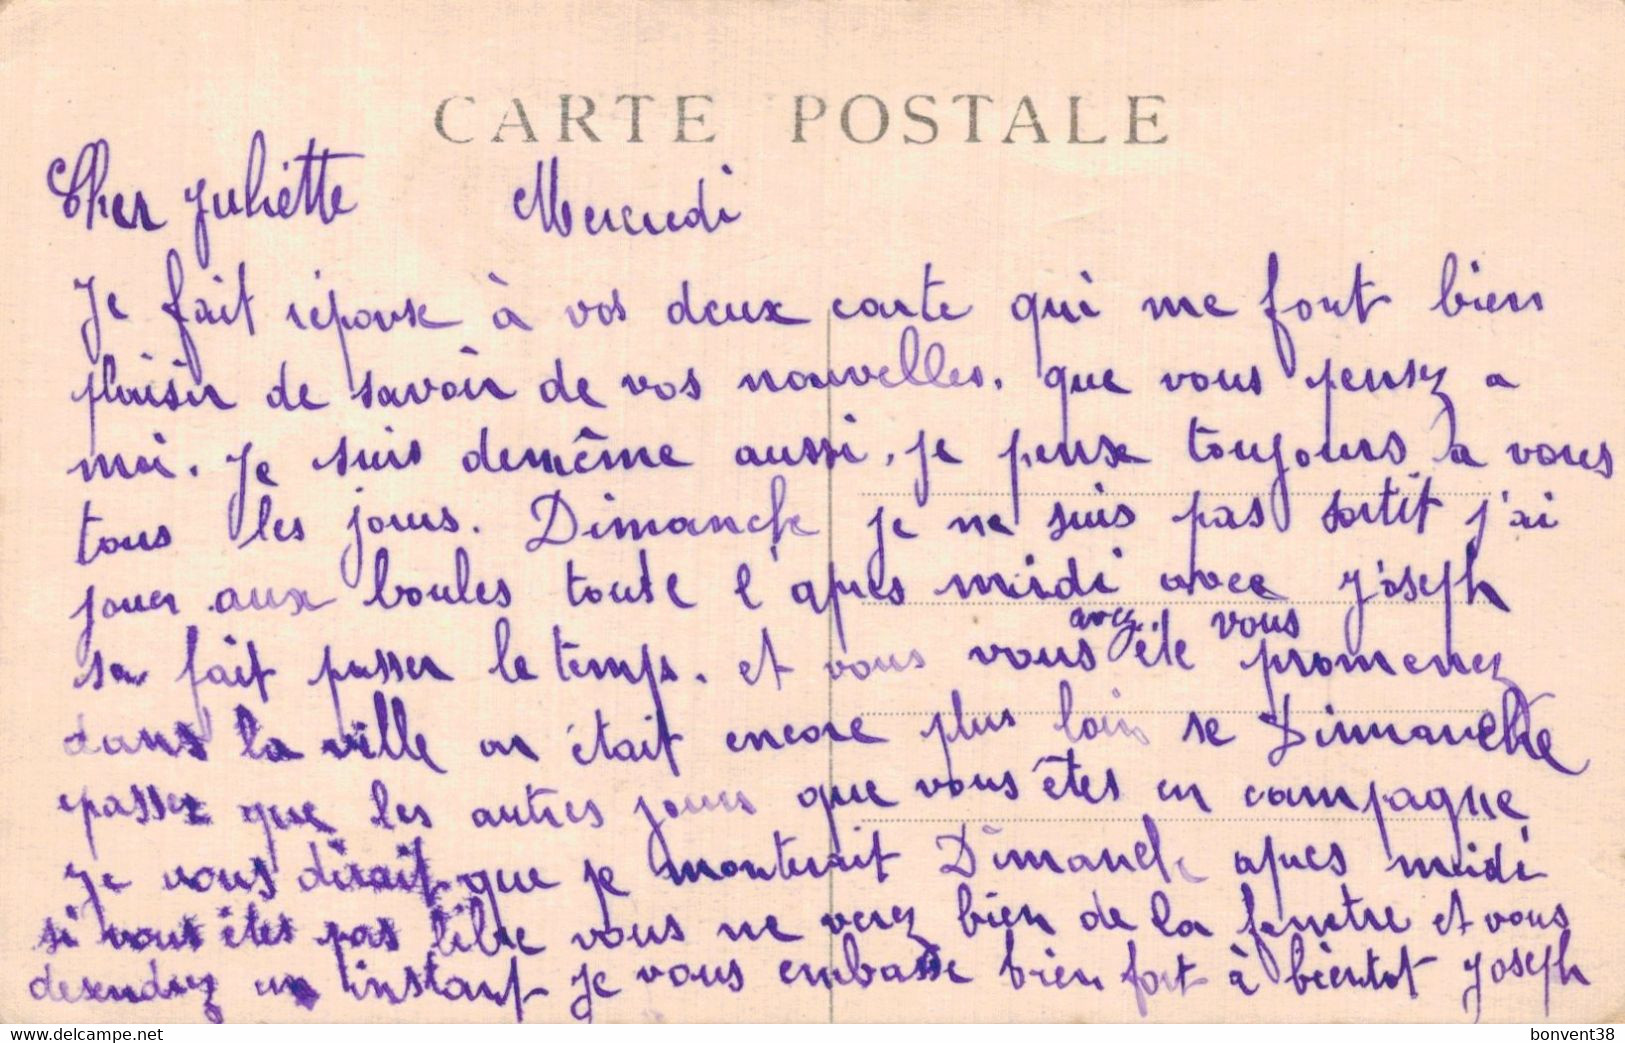 CARTE POSTALE
Cher Juliette Mercredi
Je fait réponse à vos deux carte qui me font bien
plaisir de savoir de vos nouvelles. que vous pensez a
moi. Je suis demême aussi, je pense toujours a vous
tous les jours. Dimanche je ne suis pas sortit j'ai
jouer aux boules toute l'après midi avec Joseph
sa fait passer le temps. et vous vous avez été vous promenez
dans la ville on était encore plus loin se Dimanche
passez que les autres jours que vous êtes en campagne
Je vous dirait que je monterait Dimanche apres midi
si vous êtes pas libre vous ne verez bien de la fenetre et vous
desendrez un instant je vous embrasse bien fort à bientot Joseph
www.delcampe.net
bonvent38